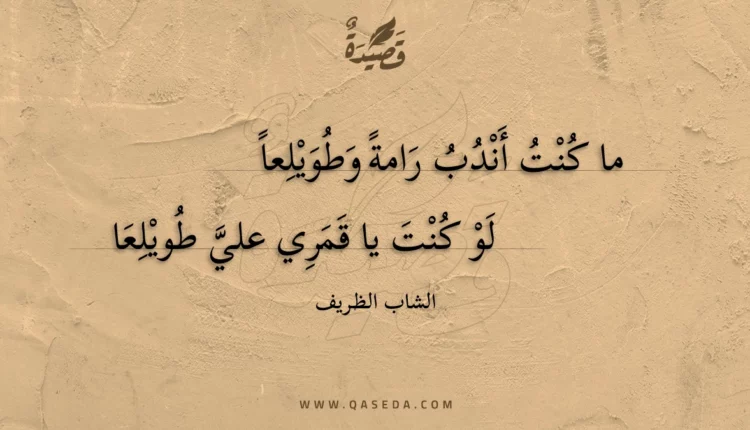 قَصِيْدَةٌ
ما كُنْتُ أَنْدُبُ رَامةً وَطُوَيْلِعاً
لَوْ كُنْتَ يا قَمَرِي عليَّ طُويْلِعَا
الشاب الظريف
WWW.QASEDA.COM